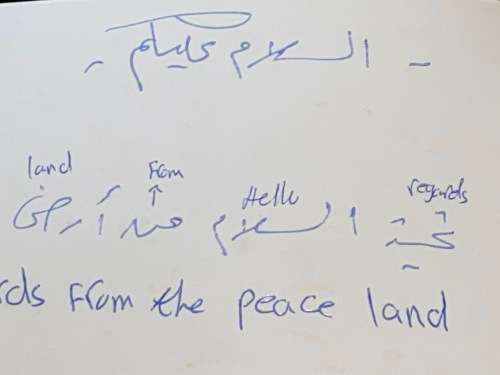 - السلام عليكم -
land From Hello regards
تحية السلام من أرض
rds From the peace land